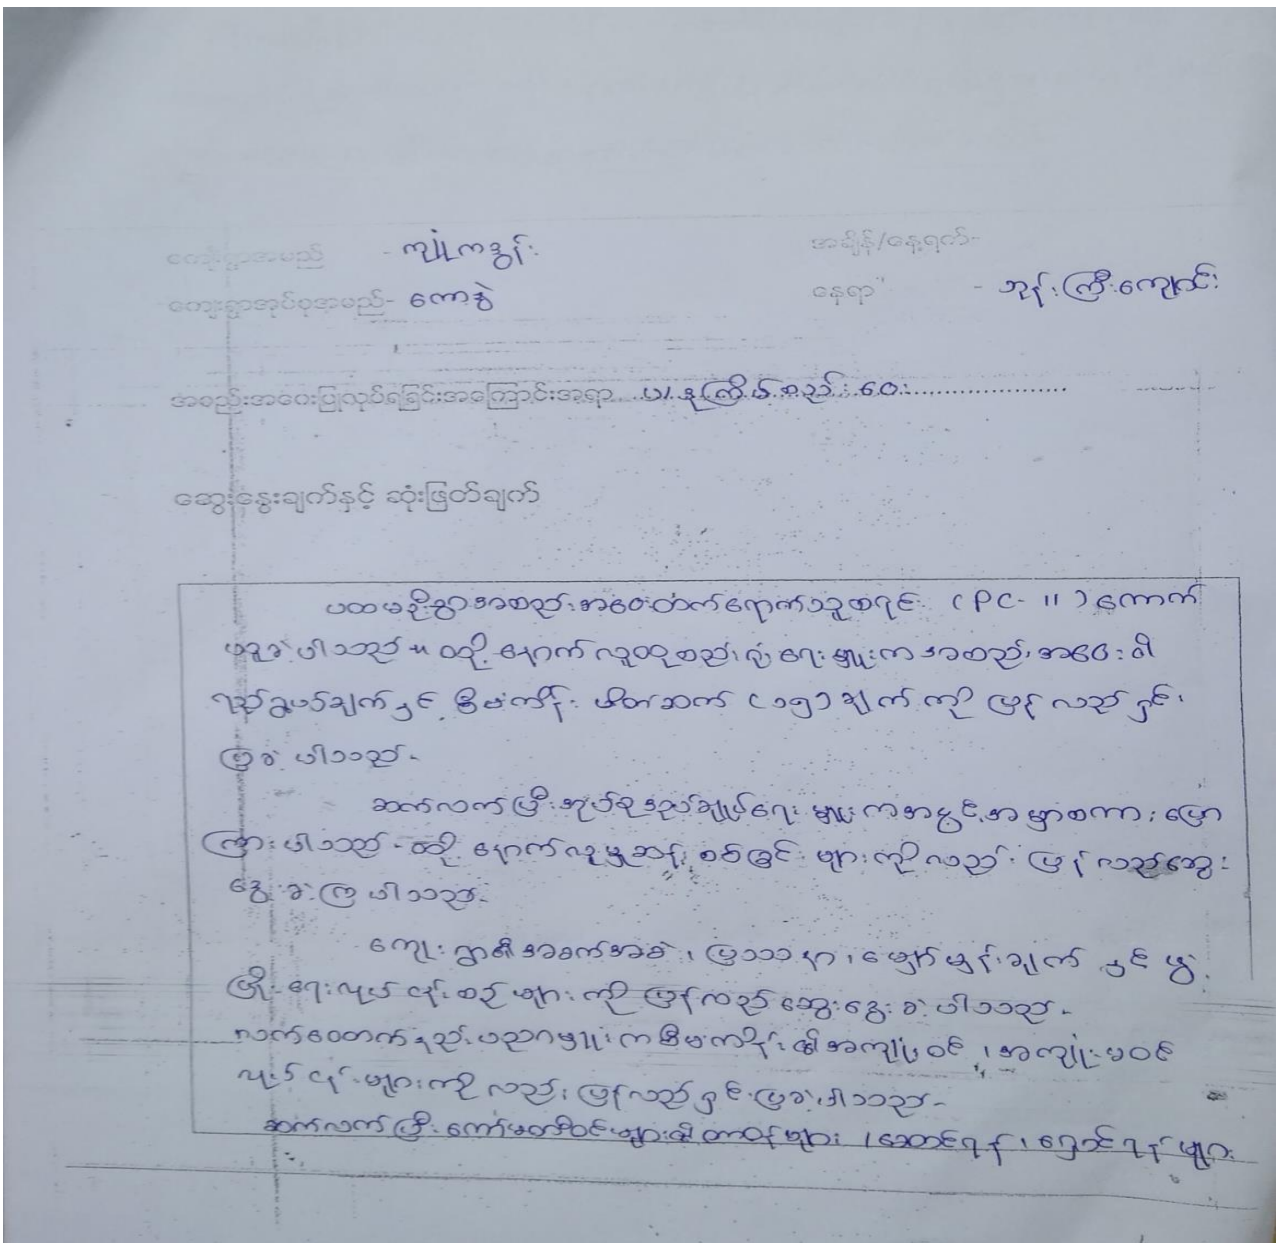 ကျေးရွာအမည် - ကျုံကဒွန်း အချိန်/နေ့ရက်-
ကျေးရွာအုပ်စုအမည်- ကောစွဲ နေရာ - ဘုန်းကြီးကျောင်း
အစည်းအဝေးပြုလုပ်ရခြင်းအကြောင်းအရာ ပ/ဒုကြိမ်စည်းဝေး
ဆွေးနွေးချက်နှင့် ဆုံးဖြတ်ချက်
ပထမဦးစွာအစည်းအဝေးတက်ရောက်သူစာရင်း (PC-11) ကောက်
ယူခဲ့ပါသည်။ ထို့နောက် လူထုစည်းရုံးရေးမှူးကအစည်းအဝေး၏
ရည်ရွယ်ချက်နှင့် စီမံကိန်း မိတ်ဆက် (၁၅)ချက်ကို ပြန်လည်ရှင်း
ပြခဲ့ပါသည်-
ဆက်လက်ပြီးအုပ်စုအုပ်ချုပ်ရေးမှူးကအဖွင့်အမှာစကားပြော
ကြားပါသည်-ထို့နောက်လူမှုဆန်းစစ်ခြင်းများကိုလည်းပြန်လည်ဆွေး
နွေးခဲ့ကြပါသည်-
ကျေးရွာ၏အခက်အခဲ၊ ပြဿနာ၊ မျှော်မှန်းချက်နှင့်ဖွံ့
ဖြိုးရေးလုပ်ငန်းစဉ်များကိုပြန်လည်ဆွေးနွေးခဲ့ပါသည်-
လက်ထောက်နည်းပညာမှူးကစီမံကိန်း၏အကျုံးဝင်၊အကျုံးမဝင်
လုပ်ငန်းများကိုလည်းပြန်လည်ရှင်းပြခဲ့ပါသည်-
ဆက်လက်ပြီးကော်မတီဝင်များ၏တာဝန်များ၊ဆောင်ရန်၊ရှောင်ရန်များ